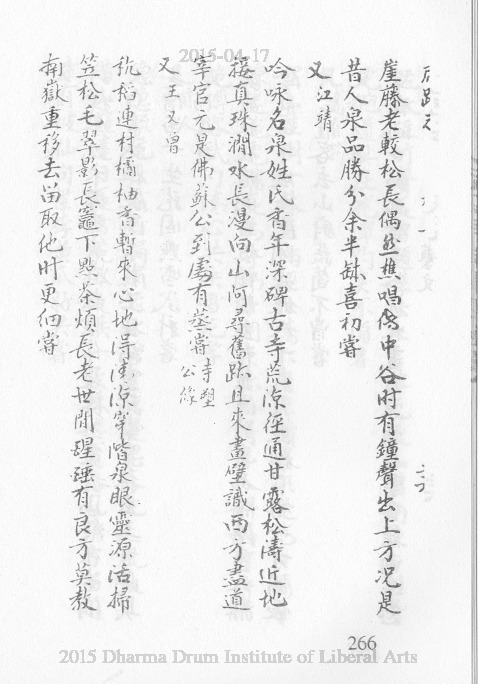 2015-04-17
崖藤老較松長偶然樵唱傳中谷时有鐘聲出上方况是
昔人泉品勝分余半缽喜初嘗
又江靖
吟咏名泉姓氏香年深碑古寺荒涼徑通甘露松濤近地
接真珠澗水長漫向山何尋舊跡且來畫壁識西方盡道
宰官元是佛蘇公到處有蒸嘗寺塑公像
又王又曾
秔稻連村橘柚香暫來心地得清涼穿階泉眼靈源活掃
笠松毛翠影長竈下點茶煩長老世間理有良方莫教
南嶽重移去留取他时更细嘗
266
2015 Dharma Drum Institute of Liberal Arts